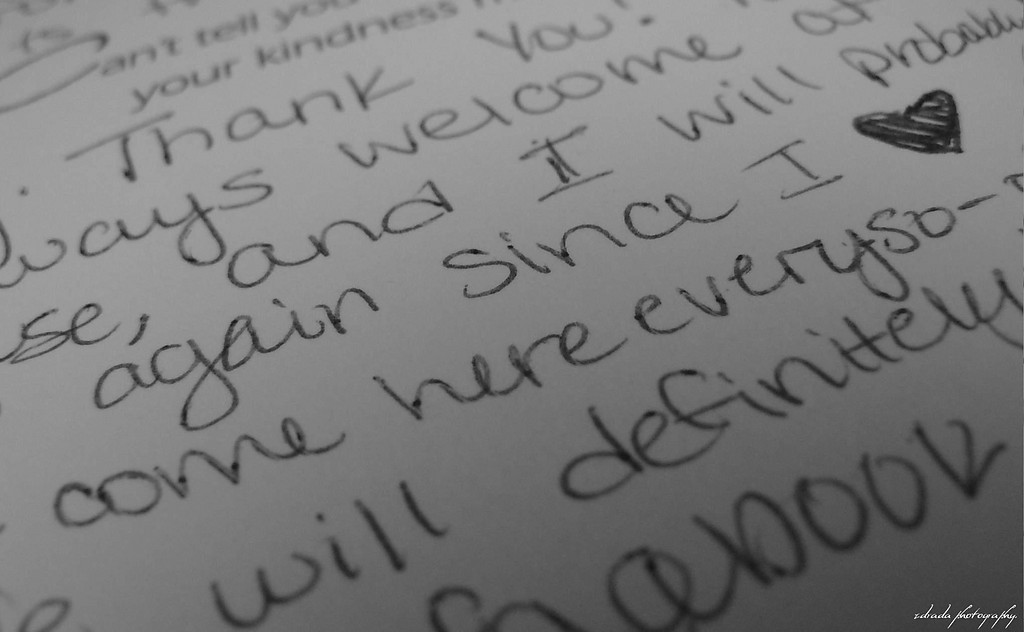 Can't tell you
your kindness
Thank You!
always welcome at
se, and I will probably
again since I ♥
come here everyso-
will definitely
facebook
zdrada photography.